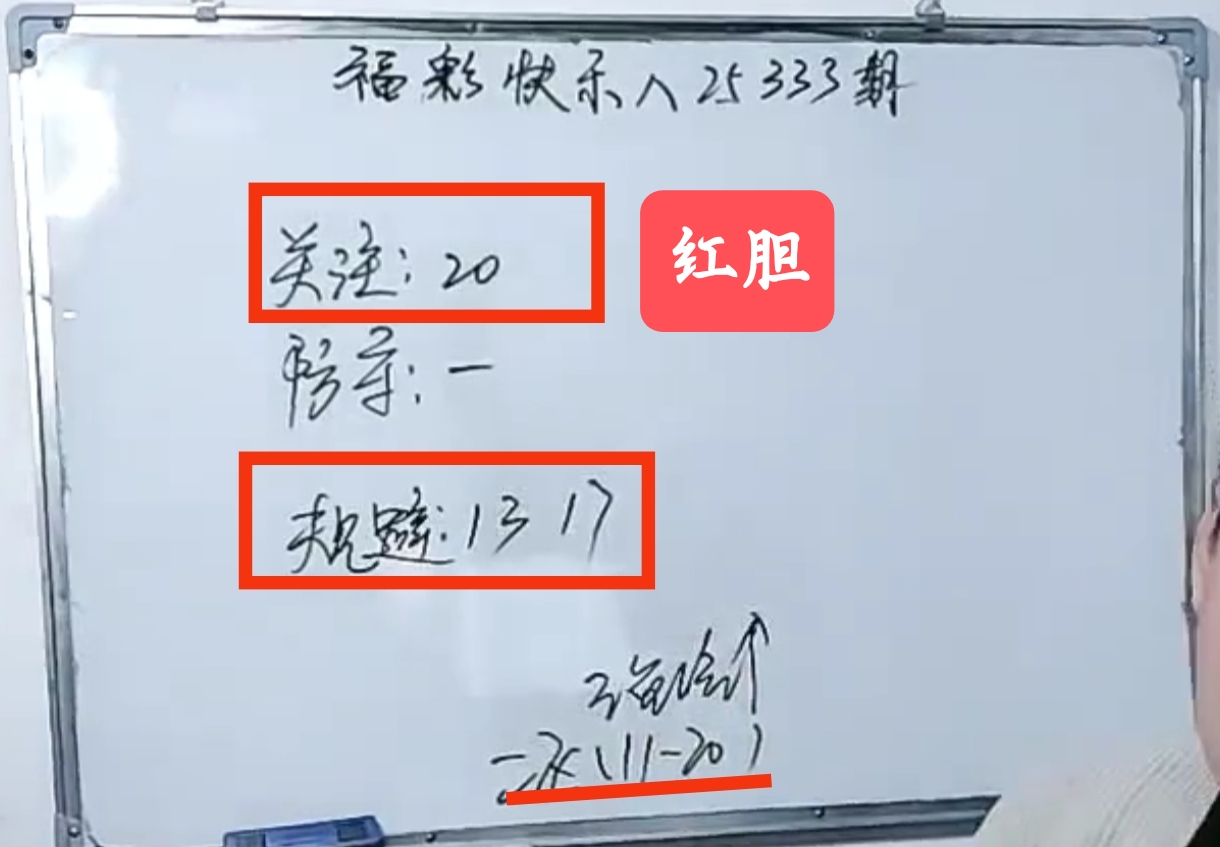 福彩快乐八25333期
关注：20
红胆
防守：一
规避：13 17
二区(11-20)